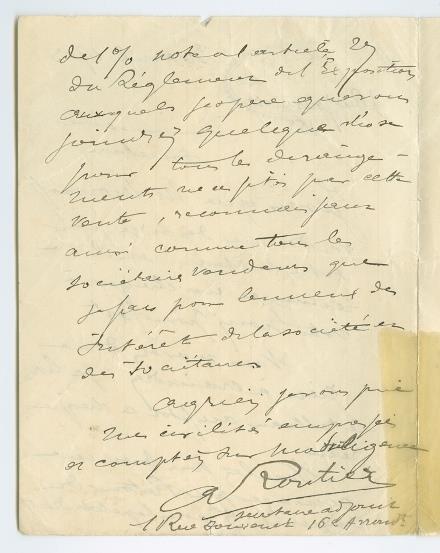 de 1% noté a l article 29
du Réglement de l Exposition
auxquels j'espere que vous
joindrez quelque chose
pour tous les derange-
ments necessités par cette
vente, reconnaissant
ainsi comme tous les
sociétaires vendeurs que
je fais pour le mieux des
intérêts de la société et
des Sociétaires
agréez je vous prie
mes civilités empressées
et comptez sur ma diligence
A Routier
secretaire adjoint
1 Rue Jouvenet 16e Arrondt